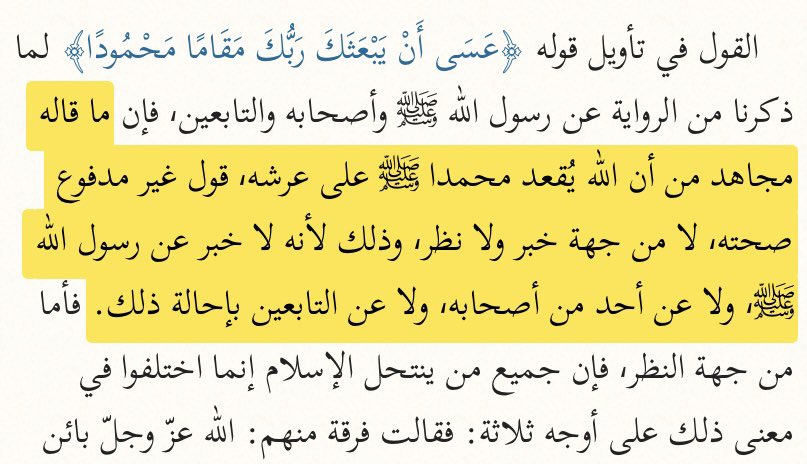 القول في تأويل قوله ﴿عَسَى أَنْ يَبْعَثَكَ رَبُّكَ مَقَامًا مَحْمُودًا﴾ لما
ذكرنا من الرواية عن رسول الله ﷺ وأصحابه والتابعين، فإن ما قاله
مجاهد من أن الله يُقعد محمدا ﷺ على عرشه، قول غير مدفوع
صحته، لا من جهة خبر ولا نظر، وذلك لأنه لا خبر عن رسول الله
ﷺ، ولا عن أحد من أصحابه، ولا عن التابعين بإحالة ذلك. فأما
من جهة النظر، فإن جميع من ينتحل الإسلام إنما اختلفوا في
معنى ذلك على أوجه ثلاثة: فقالت فرقة منهم: الله عزّ وجلّ بائن